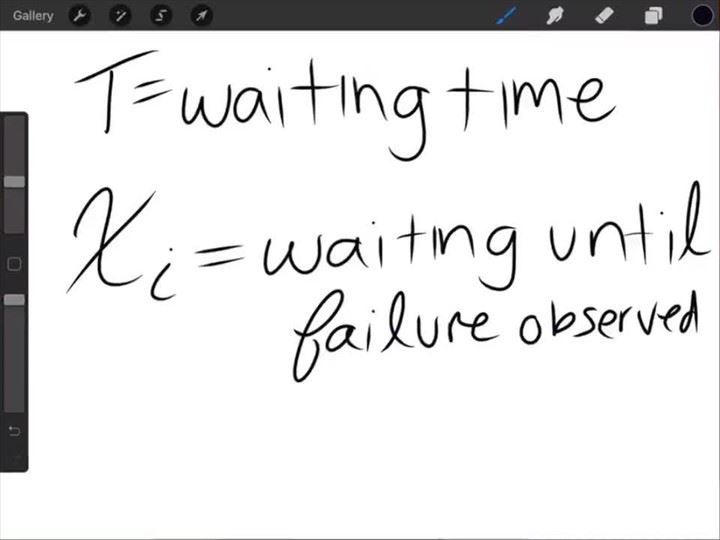 Gallery
T=waiting time
Xi=waiting until
failure observed